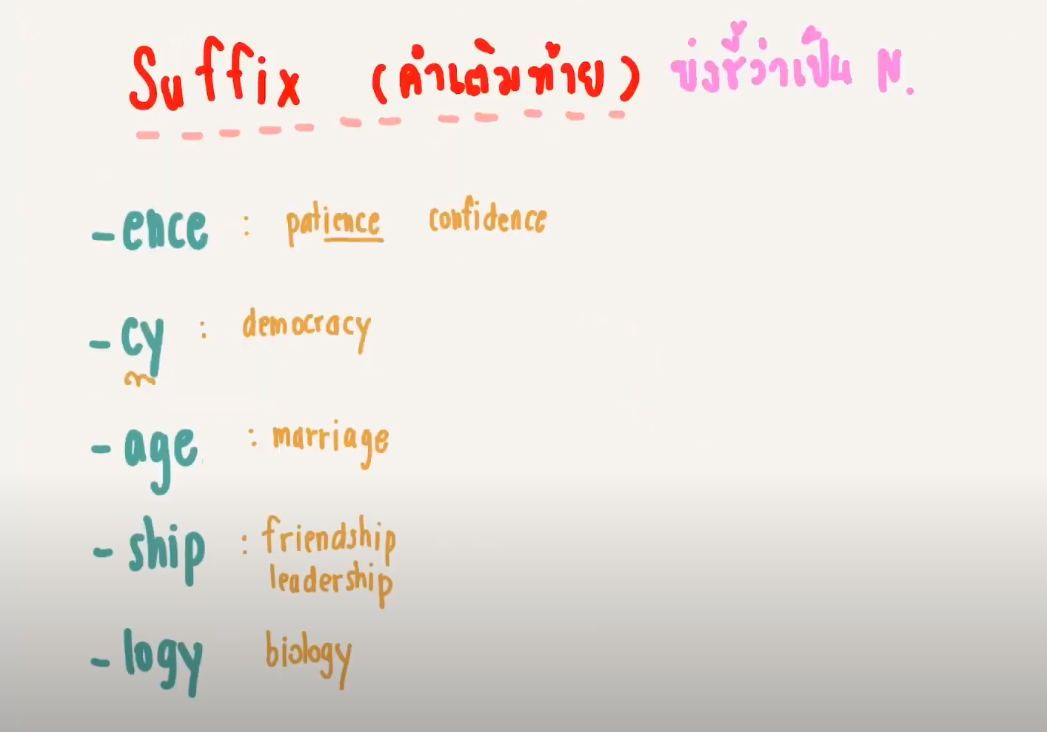 Suffix (คำเติมท้าย) บ่งชี้ว่าเป็น N.
-ence : patience confidence
-cy : democracy
-age : marriage
-ship : friendship
leadership
-logy biology